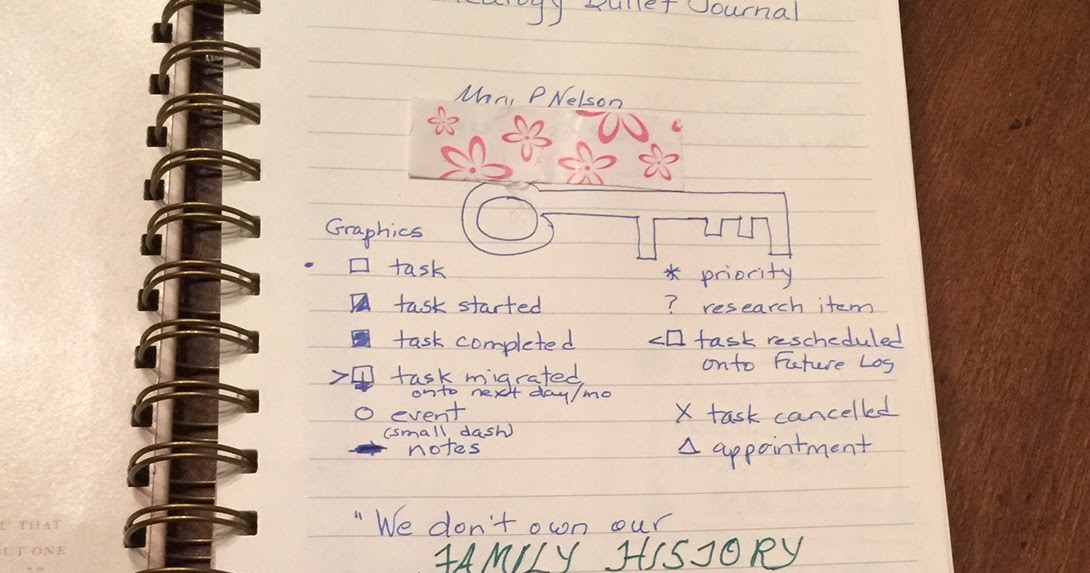 Bullet Journal
P Nelson
Graphics
□ task
task started
■ task completed
> task migrated
onto next day/mo
○ event
(small dash)
notes
* priority
? research item
<□ task rescheduled
onto Future Log
X task cancelled
△ appointment
"We don't own our
FAMILY HISTORY
U THAT
UT ONE